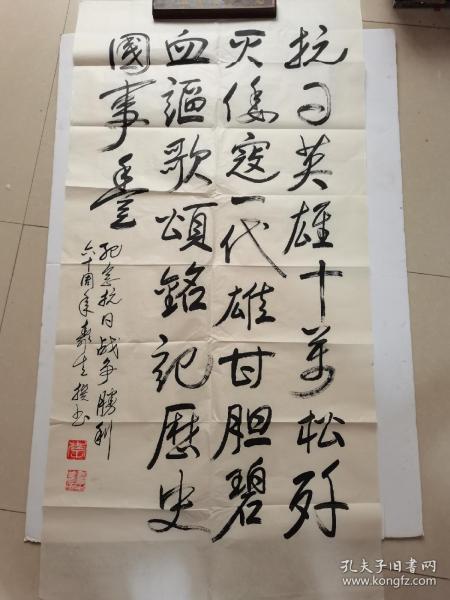 抗日英雄十万松歼
灭倭寇一代雄甘胆碧
血謳歌頌銘記歷史
國事
纪念抗日战争勝利
六十周年 撰书
孔夫子旧书网
www.kongfz.com